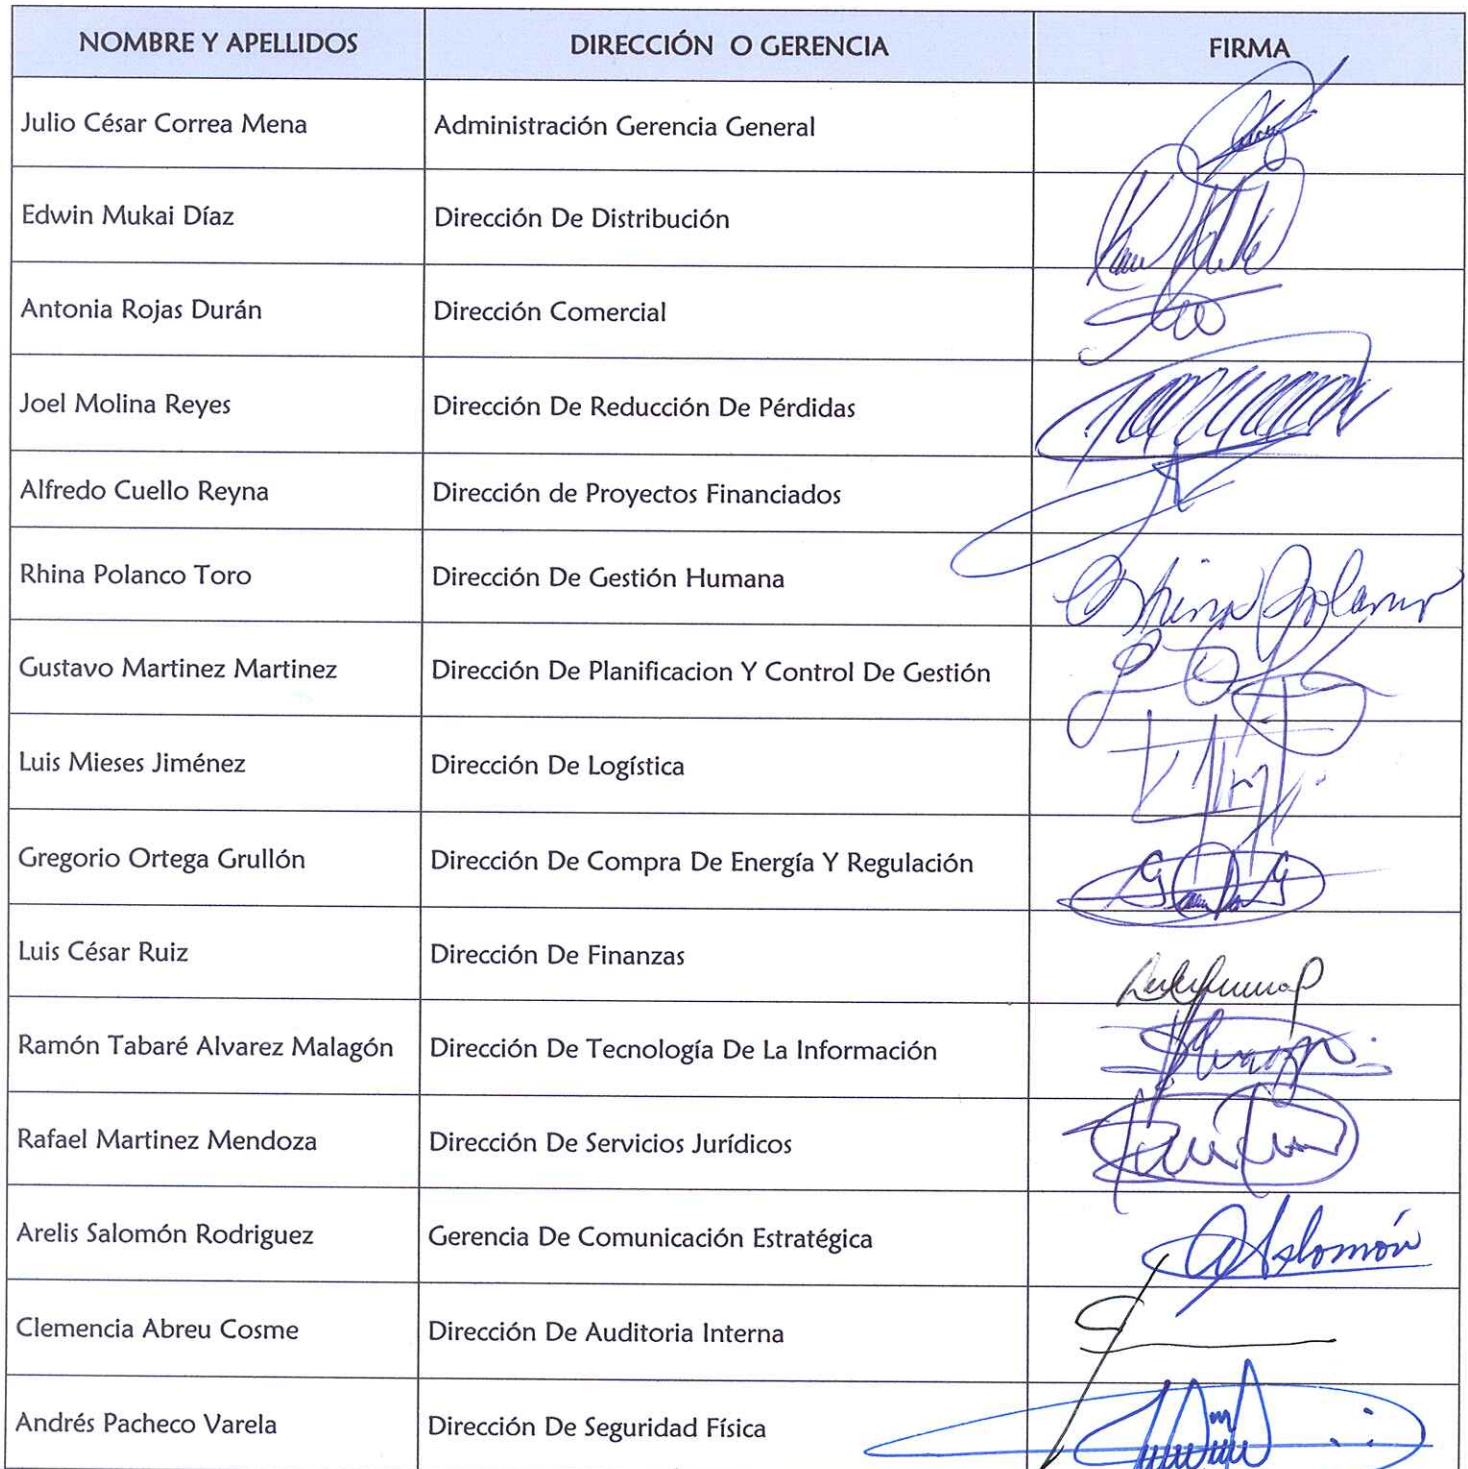 NOMBRE Y APELLIDOS DIRECCIÓN O GERENCIA FIRMA
Julio César Correa Mena Administración Gerencia General
Edwin Mukai Díaz Dirección De Distribución
Antonia Rojas Durán Dirección Comercial
Joel Molina Reyes Dirección De Reducción De Pérdidas
Alfredo Cuello Reyna Dirección de Proyectos Financiados
Rhina Polanco Toro Dirección De Gestión Humana Rhina Polanco
Gustavo Martinez Martinez Dirección De Planificacion Y Control De Gestión
Luis Mieses Jiménez Dirección De Logística
Gregorio Ortega Grullón Dirección De Compra De Energía Y Regulación
Luis César Ruiz Dirección De Finanzas
Ramón Tabaré Alvarez Malagón Dirección De Tecnología De La Información
Rafael Martinez Mendoza Dirección De Servicios Jurídicos
Arelis Salomón Rodriguez Gerencia De Comunicación Estratégica ASalomón
Clemencia Abreu Cosme Dirección De Auditoria Interna
Andrés Pacheco Varela Dirección De Seguridad Física